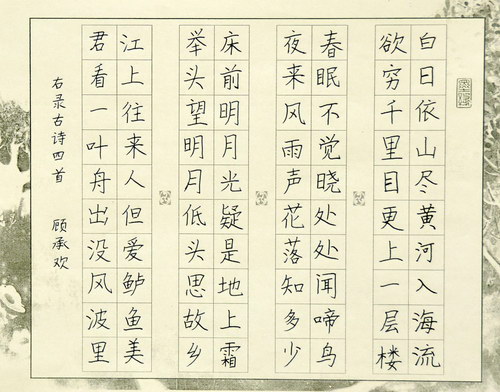 白日依山尽黄河入海流
欲穷千里目更上一层楼
春眠不觉晓处处闻啼鸟
夜来风雨声花落知多少
床前明月光疑是地上霜
举头望明月低头思故乡
江上往来人但爱鲈鱼美
君看一叶舟出没风波里
右录古诗四首 顾承欢